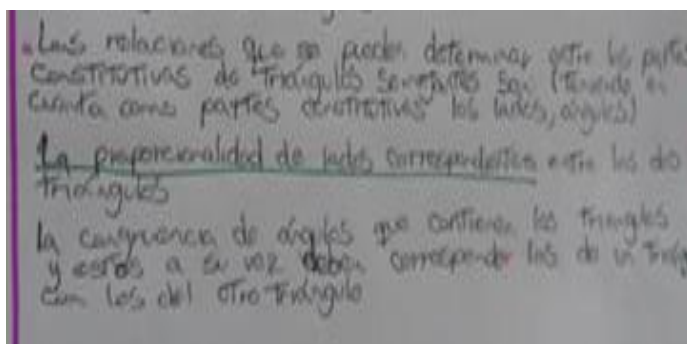 Las relaciones que se pueden determinar entre las partes
constitutivas de triángulos semejantes son (Teniendo en
cuenta como partes constitutivas los lados, ángulos)
La proporcionalidad de lados correspondientes entre los dos
triángulos
la congruencia de ángulos que contienen los triangulos
y estos a su vez deben corresponder los de un
con los del otro triángulo